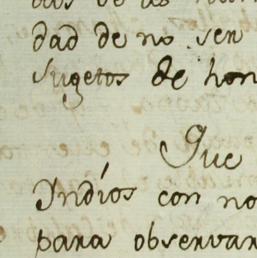 dad de no ser
sugetos de hon
Que
Indíos con no
para observar